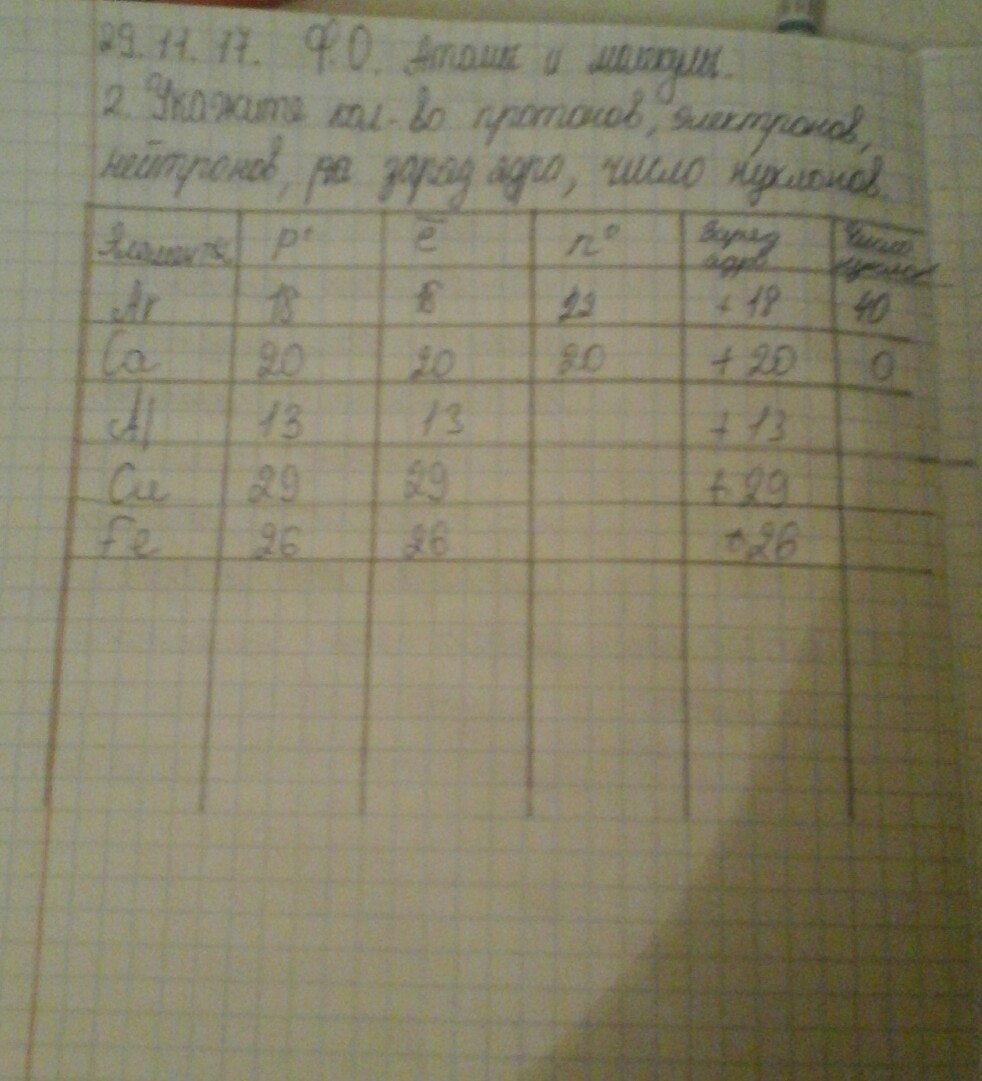 29.11.17. Ф.О. Атомы и молекулы.
2. Укажите кол-во протонов, электронов,
нейтронов, заряд ядра, число нуклонов.
Элементы p⁺ e̅ n⁰ Заряд ядра Число
Ar 18 22 +18 40
Ca 20 20 20 +20 0
Al 13 13 +13
Cu 29 29 +29
Fe 26 26 +26